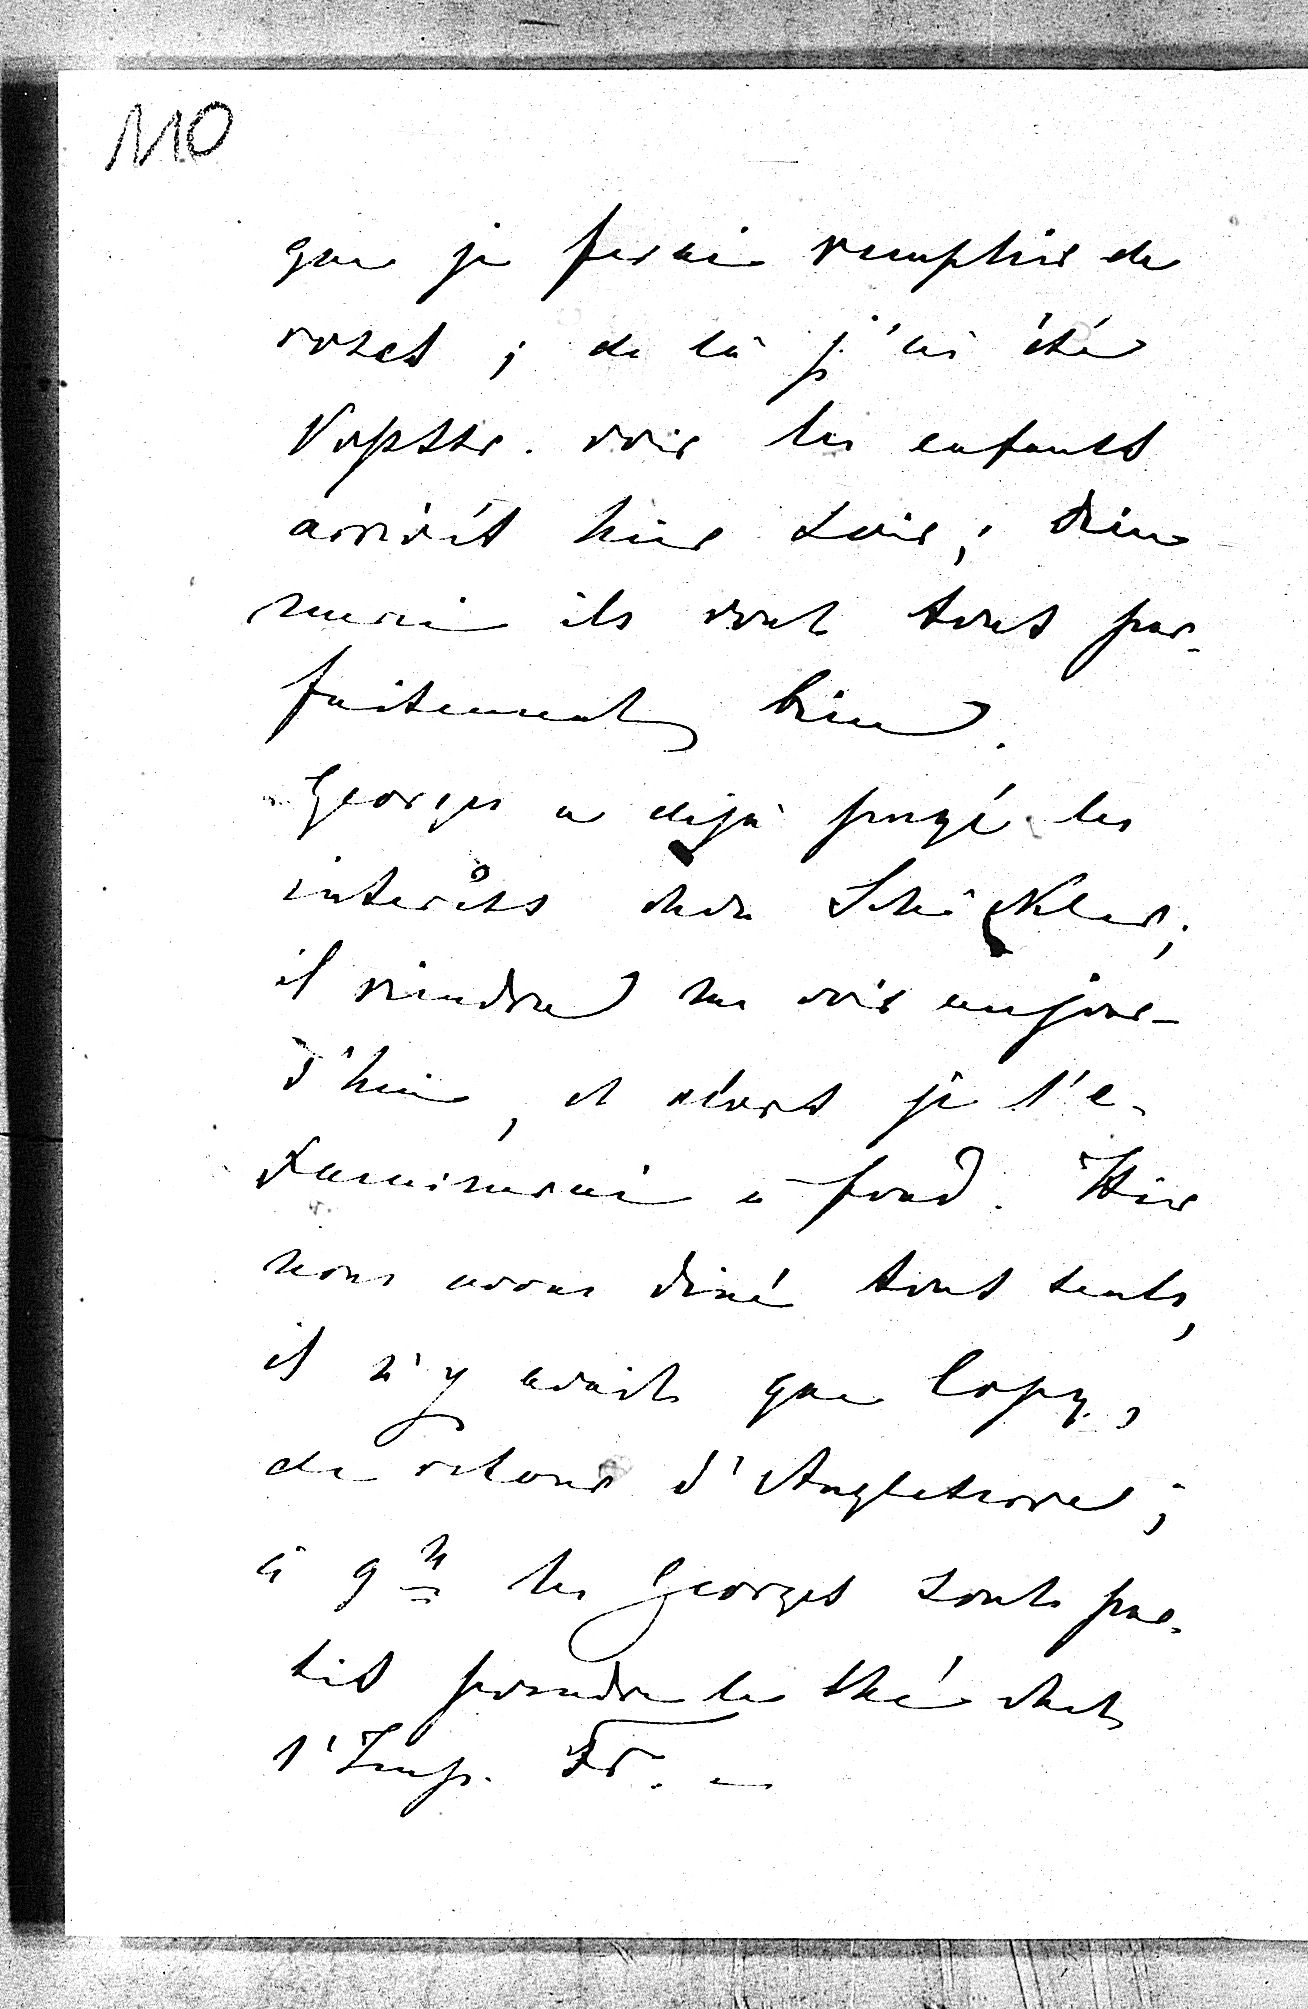 110
que je ferai remplir de
roses ; de là j'ai été
voir les enfants
arrivés hier soir ; Dieu
merci ils vont tous par-
faitement bien.
Georges a déjà payé les
intérêts chez Schickler ;
il viendra me voir aujour-
d'hui, et alors je l'e-
xaminerai à fond. Hier
nous avons diné tous seuls,
il n'y avait que Copy,
de retour d'Angleterre ;
à 9 h les Georges sont par-
tis prendre le thé chez
l'Imp. Fr. –